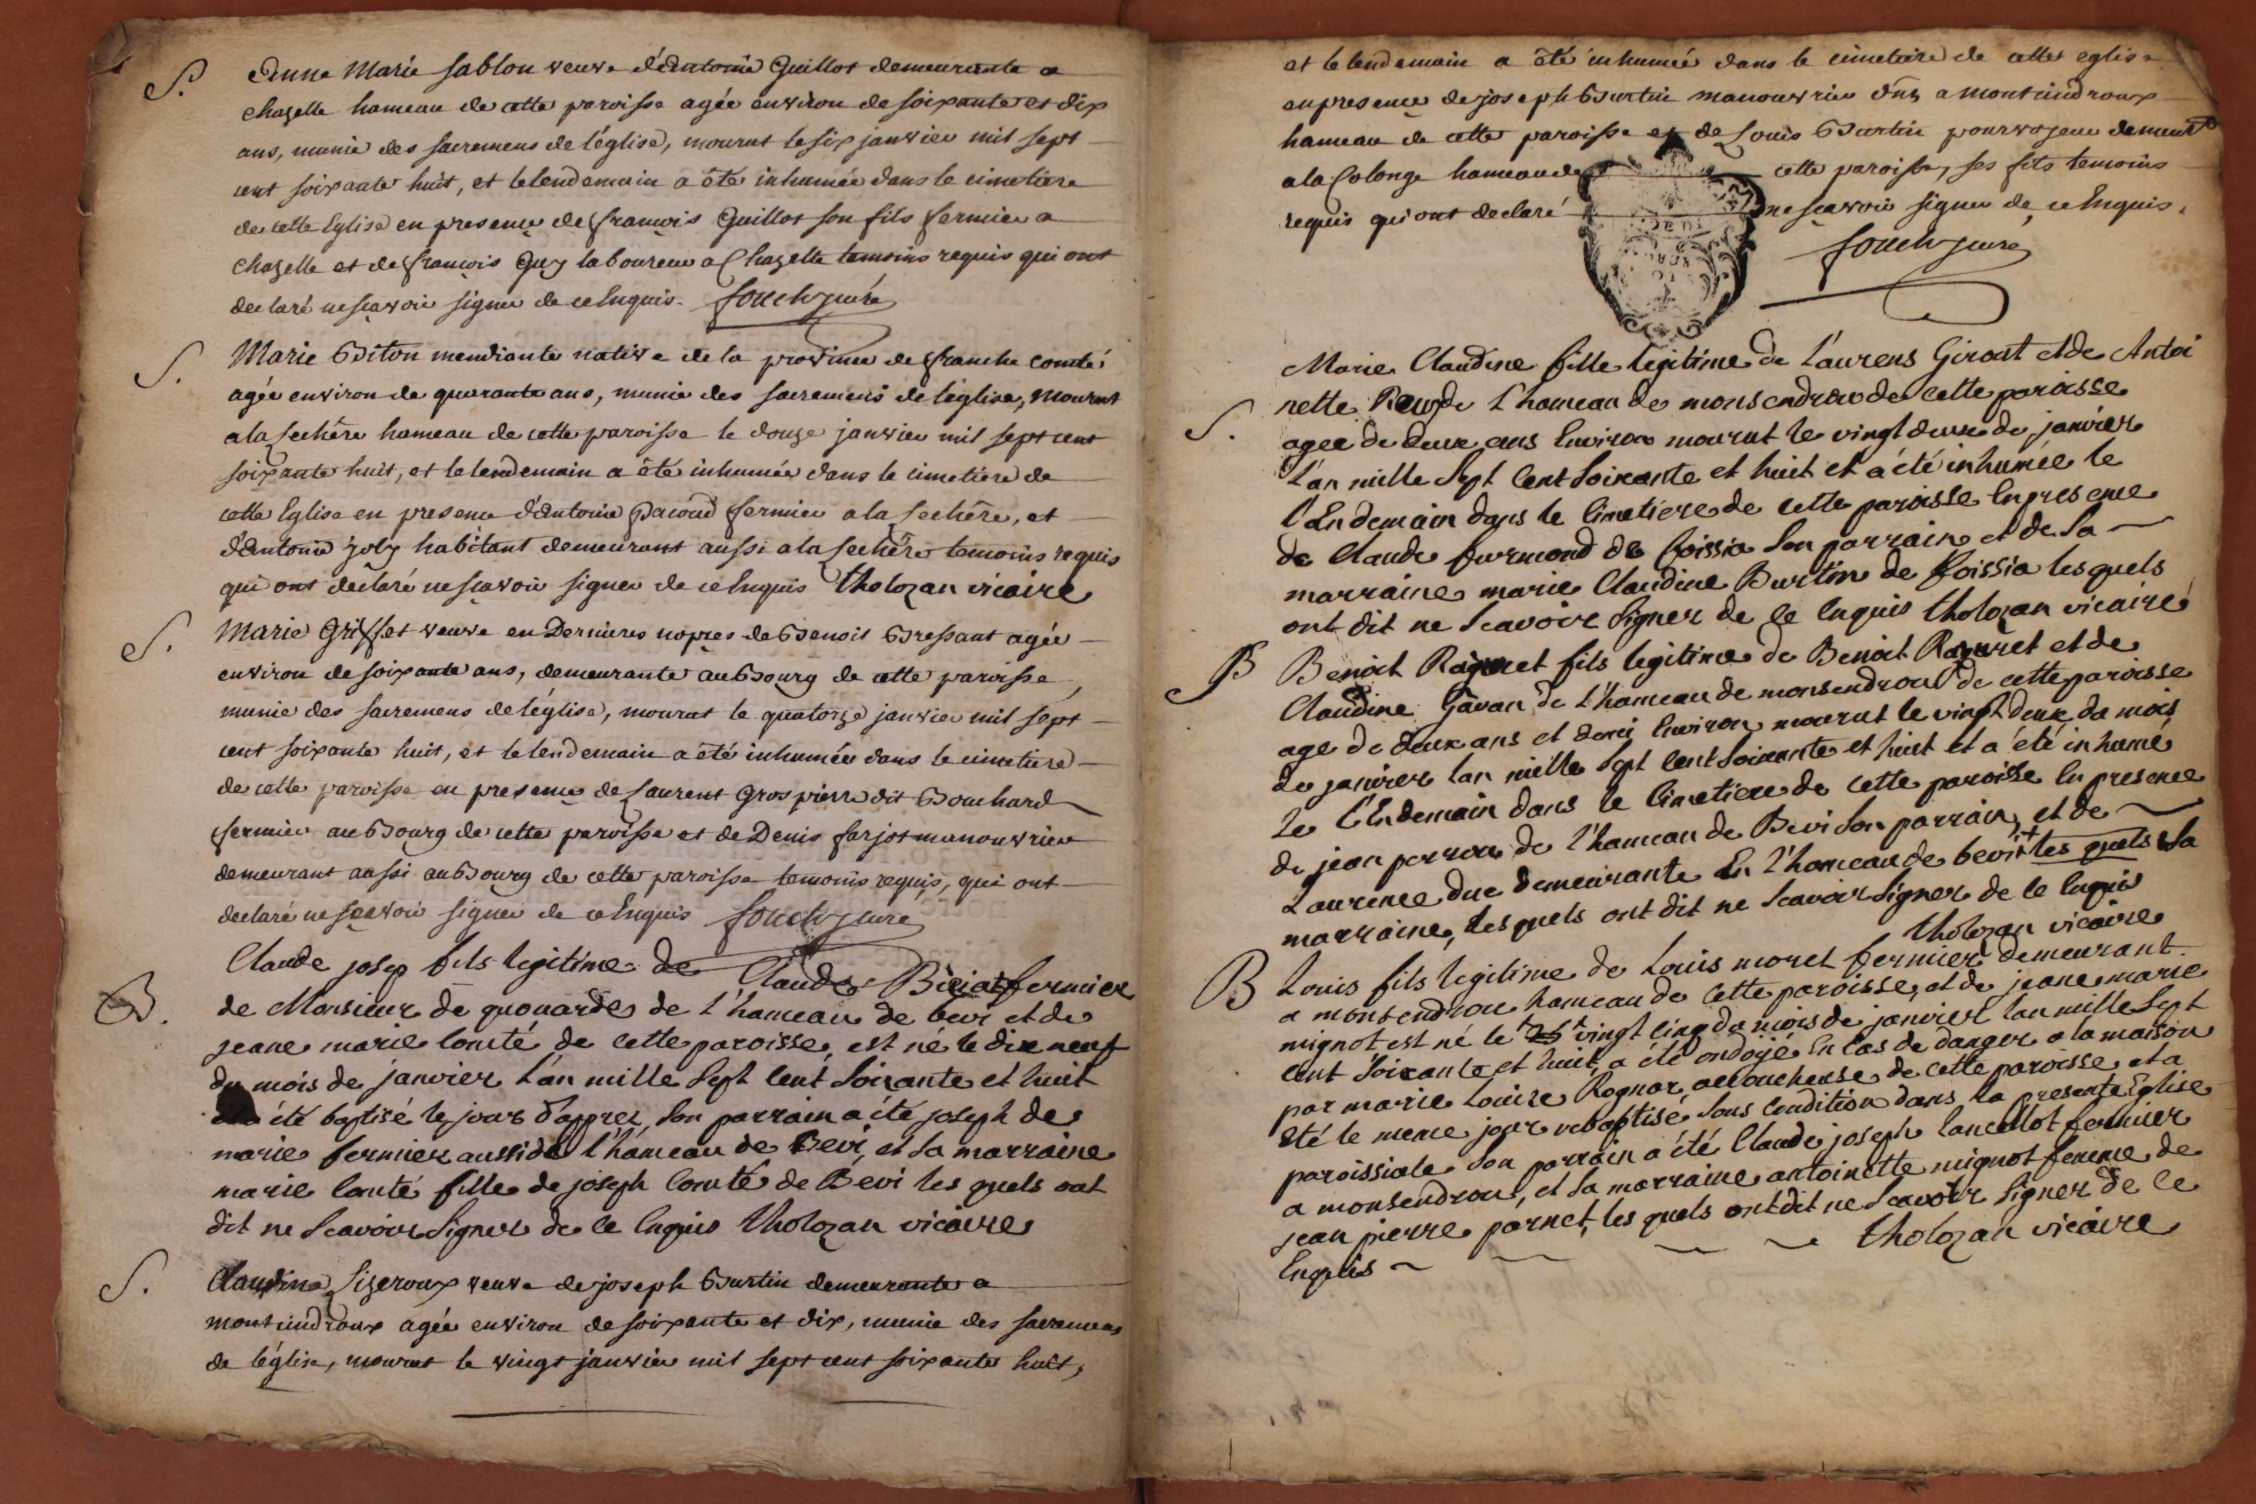 S. Anne Marie Sablon veuve d'Antoine Guillot demeurante a
Chazelle hameau de cette paroisse agée environ de soixante et dix
ans, munie des sacremens de l'église, mourut le six janvier mil sept
cent soixante huit, et le lendemain a été inhumée dans le cimetiere
de cette Eglise en presence de françois Guillot son fils fermier a
Chazelle et de françois Guy laboureur a Chazelle temoins requis qui ont
declaré ne sçavoir signer de ce Enquis. fouch curé
S. Marie Biton mendiante native de la province de franche comté
agée environ de quarante ans, munie des sacremens de l'église, mourut
a la sechére hameau de cette paroisse le douze janvier mil sept cent
soixante huit, et le lendemain a été inhumée dans le cimetiere de
cette Eglise en presence d'Antoine Pacoud fermier a la sechére, et
d'Antoine joly habitant demeurant aussi a la sechére temoins requis
qui ont declaré ne sçavoir signer de ce Enquis tholozan vicaire
S. Marie Griffet veuve en Dernieres nopces de Benoit Bressant agée
environ de soixante ans, demeurante au Bourg de cette paroisse,
munie des sacremens de l'église, mourut le quatorze janvier mil sept
cent soixante huit, et le lendemain a été inhumée dans le cimetiere
de cette paroisse en presence de Laurent Grospierre dit Bouchard
fermier au Bourg de cette paroisse et de Denis farjot manouvrier
demeurant aussi au Bourg de cette paroisse temoins requis, qui ont
declaré ne sçavoir signer de ce Enquis fouch curé
Claude josep fils legitime de Claude fermier
B. de Monsieur de quouardes de l'hameau de bevi et de
jeane marie Comté de cette paroisse, est né le dix neuf
du mois de janvier l'an mille sept cent soixante et huit
été baptisé le jour d'apprez, son parrain a été joseph de
marie fermier aussi de l'hameau de Bevi, et sa marraine
marie Comté fille de joseph Comté de Bevi les quels ont
dit ne scavoir signer de ce enquis tholozan vicaire
S. Claudine Lizeroux veuve de joseph Burtin demeurante a
montcindroux agée environ de soixante et dix, munie des sacremens
de l'église, mourut le vingt janvier mil sept cent soixante huit,
et le lendemain a été inhumée dans le cimetiere de cette eglise
en presence de joseph Burtin manouvrier a montcindroux
hameau de cette paroisse et de Louis Burtin pourvoyeur demeurt
a la Colonge hameau de cette paroisse, ses fils temoins
requis qui ont declaré ne sçavoir signer de ce Enquis.
fouch curé
Marie Claudine fille legitime de Laurens Girout et de Antoi
nette de l'hameau de monsendrou de cette paroisse
S. agée de deux ans environ mourut le vingt deux de janvier
l'an mille sept cent soixante et huit et a été inhumée le
l'endemain dans le cimetiere de cette paroisse en presence
de Claude furmond de foissia son parrain et de sa
marraine marie Claudine Burtin de foissia lesquels
ont dit ne scavoir signer de ce enquis tholozan vicaire
B Benoit fils legitime de Benoit et de
Claudine Gavan de l'hameau de monsendrou de cette paroisse
age de deux ans et demi environ mourut le vingt deux du mois
de janvier lan mille sept cent soixante et huit et a été inhumé
le l'endemain dans le cimetiere de cette paroisse en presence
de jean perrou de l'hameau de Bevi son parrain, et de
Laurence duc demeurante en l'hameau de bevi les quels sa
marraine, les quels ont dit ne scavoir signer de ce enquis
tholozan vicaire
B Louis fils legitime de Louis moret fermier demeurant
a monsendrou hameau de cette paroisse, et de jeane marie
mignot est né le 25 vingt cinq du mois de janvier lan mille sept
cent soixante et huit, a été ondoyé en cas de danger a la maison
par marie Louise Rognar accoucheuse de cette paroisse et a
été le meme jour rebaptisé sous condition dans la presente Eglise
paroissiale son parrain a été Claude joseph lancellot fermier
a monsendrou, et sa marraine antoinette mignot femme de
jean pierre pornet, les quels ont dit ne scavoir signer de ce
Enquis tholozan vicaire